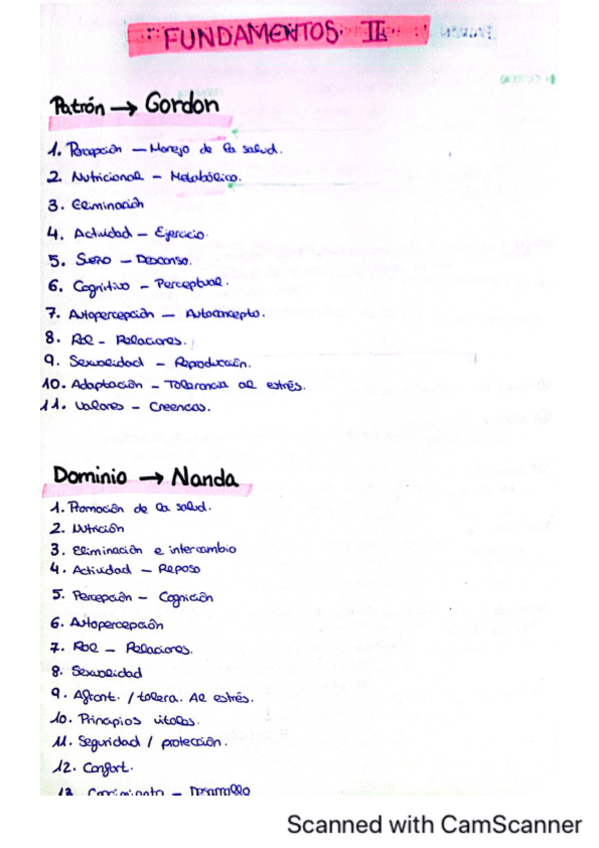 FUNDAMENTOS II
Patrón → Gordon
1. Percepción – Manejo de la salud.
2. Nutricional – Metabólico.
3. Eliminación
4. Actividad – Ejercicio.
5. Sueño – Descanso.
6. Cognitivo – Perceptual.
7. Autopercepción – Autoconcepto.
8. Rol – Relaciones.
9. Sexualidad – Reproducción.
10. Adaptación – Tolerancia al estrés.
11. Valores – Creencias.
Dominio → Nanda
1. Promoción de la salud.
2. Nutrición
3. Eliminación e intercambio
4. Actividad – Reposo
5. Percepción – Cognición
6. Autopercepción
7. Rol – Relaciones.
8. Sexualidad
9. Afront. / tolera. Al estrés.
10. Principios vitales.
11. Seguridad / protección.
12. Confort.
13 Crecimiento – Desarrollo
Scanned with CamScanner